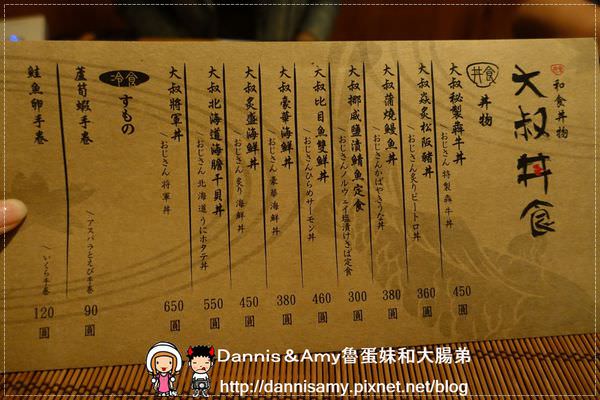 大叔丼食
和食丼物
丼食
丼物
大叔秘製犇牛丼
おじさん 特製 犇 牛 丼
450
圓
大叔焱炙松阪豬丼
おじさん炙りピートロ丼
360
圓
大叔蒲燒鰻魚丼
おじさんかばやきうな丼
380
圓
大叔挪威鹽漬鯖魚定食
おじさんノルウェイ塩漬けさば定食
300
圓
大叔比目魚雙鮮丼
おじさんひらめサーモン丼
460
圓
大叔豪華海鮮丼
おじさん 豪華 海鮮丼
380
圓
大叔炙盛海鮮丼
おじさん 炙り 海鮮 丼
450
圓
大叔北海道海膽干貝丼
おじさん 北海道 うにホタテ丼
550
圓
大叔將軍丼
おじさん 将軍丼
650
圓
冷食
すもの
蘆筍蝦手卷
アスパラとえび手巻
90
圓
鮭魚卵手卷
いくら手巻
120
圓
Dannis＆Amy魯蛋妹和大腸弟
http://dannisamy.pixnet.net/blog